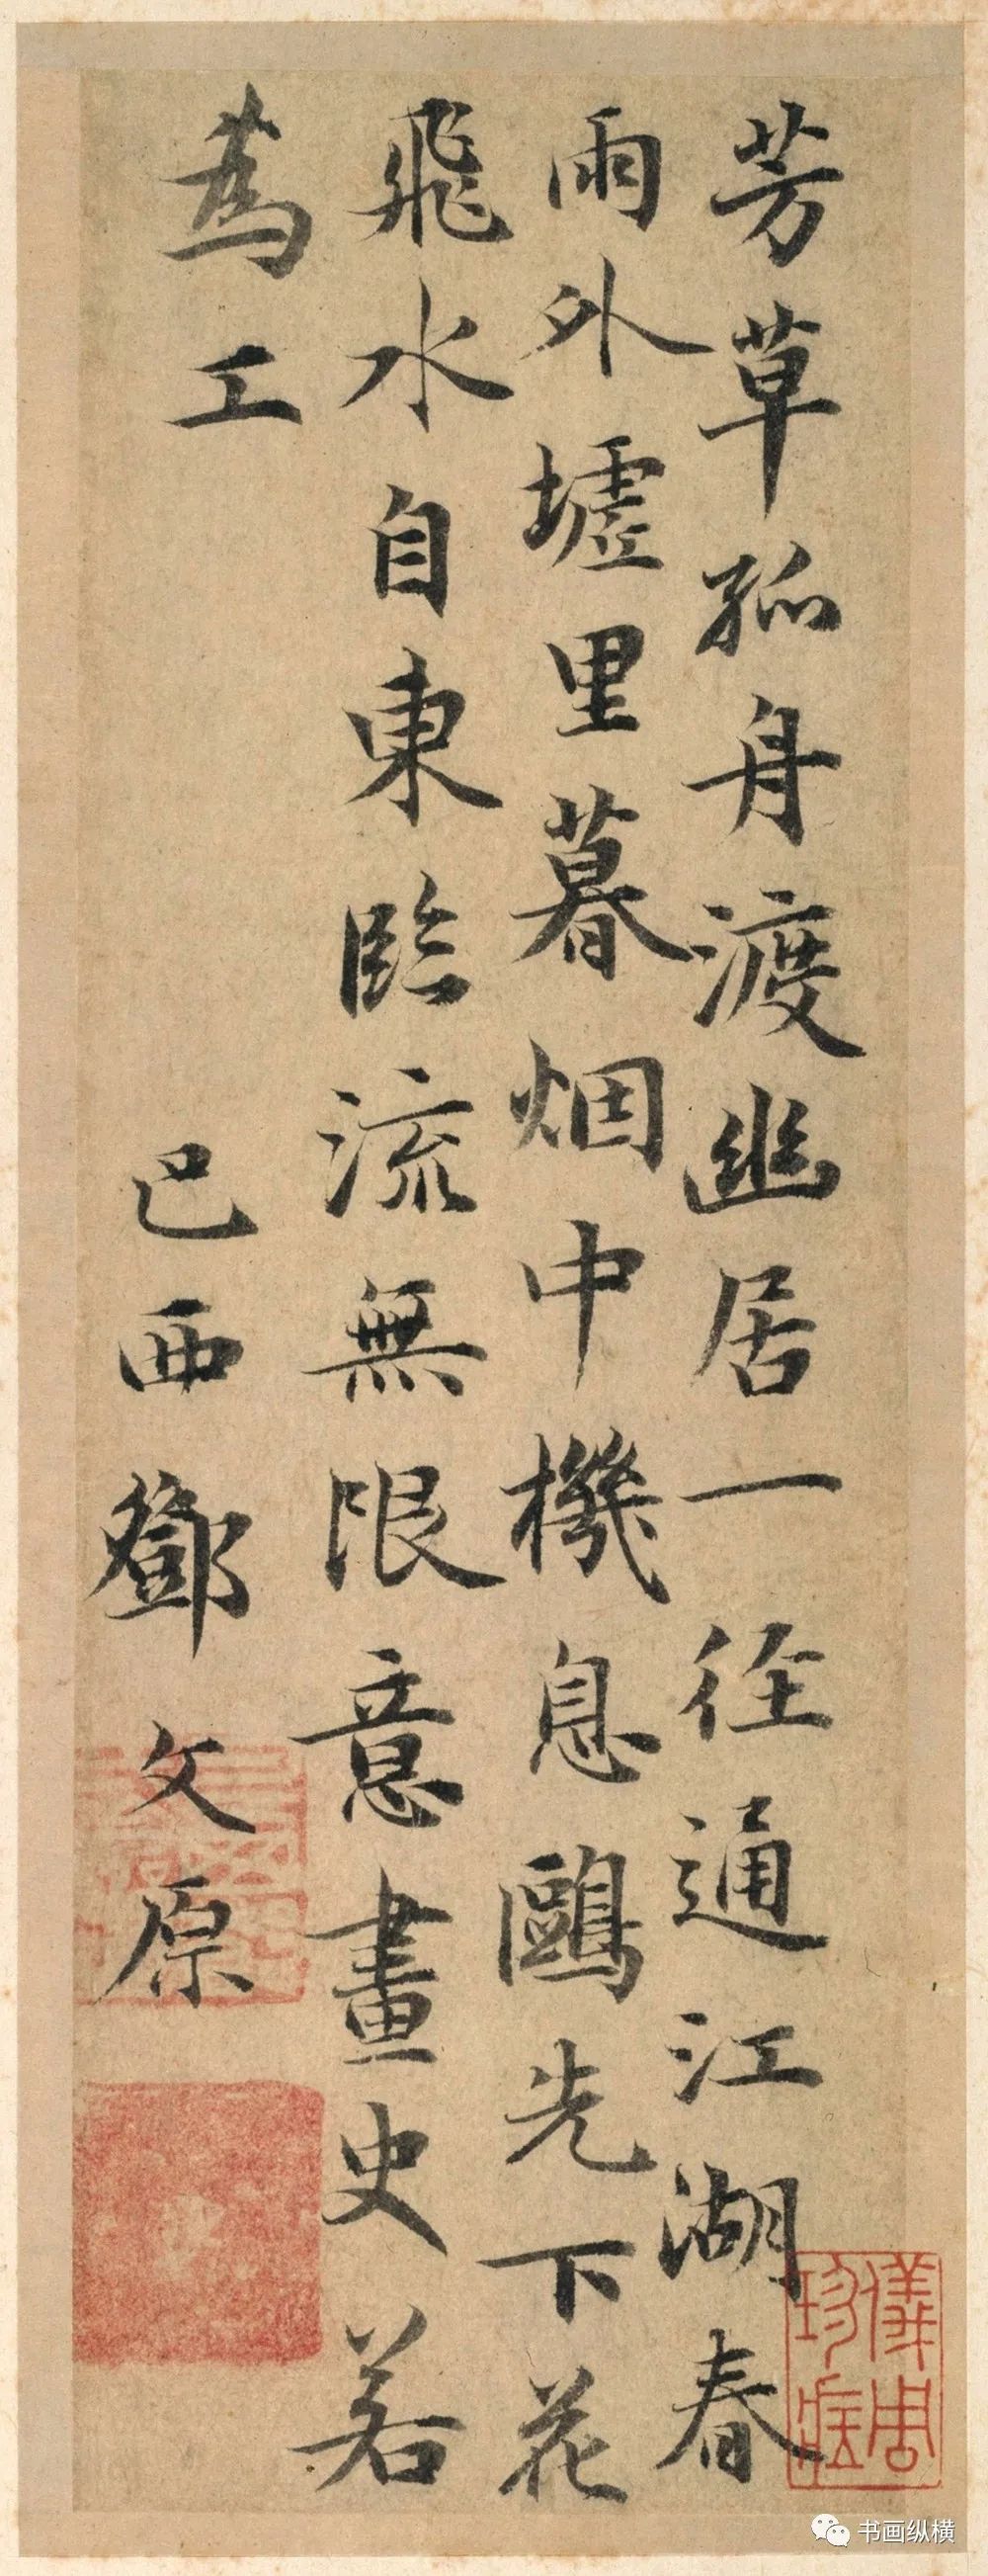 芳草孤舟渡幽居一径通江湖春
雨外墟里暮烟中機息鷗先下花
飛水自東臨流無限意畫史若
為工
巴西鄧文原
儀周珍藏
书画纵横